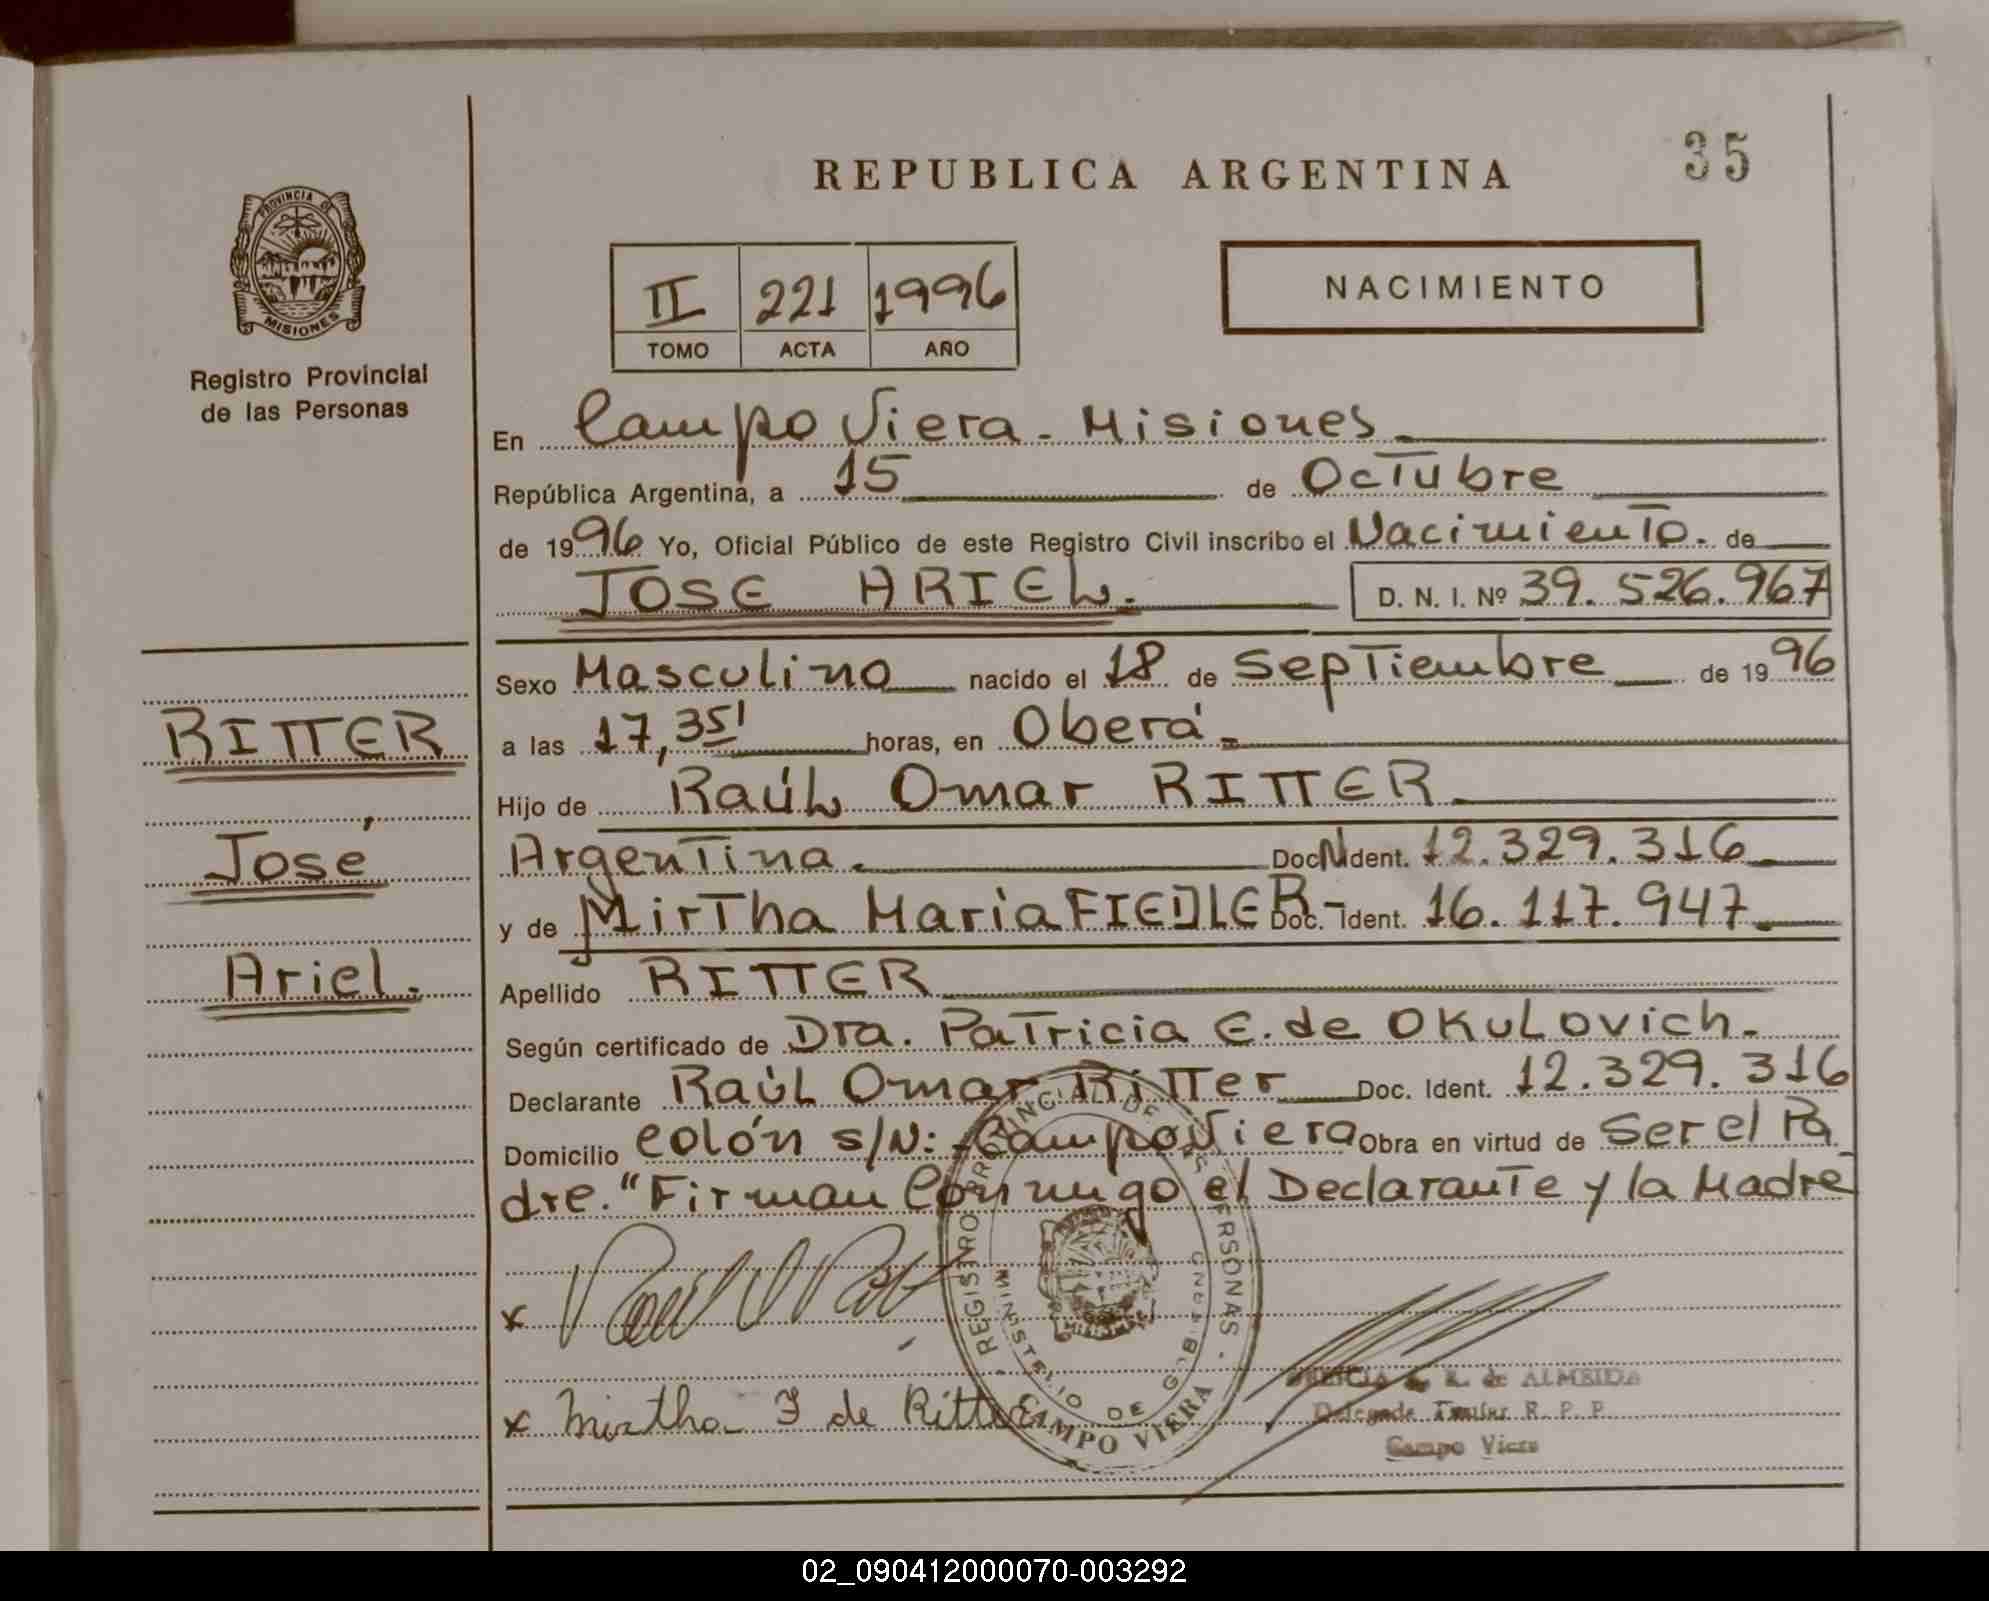 35
REPUBLICA ARGENTINA
PROVINCIA DE
MISIONES
Registro Provincial
de las Personas
NACIMIENTO
II 221 1996
TOMO ACTA AÑO
En Campo Viera - Misiones
República Argentina, a 15 de Octubre
de 1996 Yo, Oficial Público de este Registro Civil inscribo el Nacimiento. de
JOSE ARIEL. D. N. I. Nº 39.526.967
Sexo Masculino nacido el 18 de Septiembre de 1996
a las 17,35' horas, en Oberá
Hijo de Raúl Omar RITTER
Argentina. Doc. Ident. 12.329.316
y de Mirtha María FIEDLER- Doc. Ident. 16.117.947
Apellido RITTER
Según certificado de Dra. Patricia E. de OKULOVICH.
Declarante Raúl Omar Ritter Doc. Ident. 12.329.316
Domicilio Colón s/N: -Campo Viera Obra en virtud de Ser el Pa
dre. "Firman Conmigo el Declarante y la Madre
RITTER
José
Ariel.
x
x Mirtha F de Ritter
REGISTRO PROVINCIAL DE LAS PERSONAS
MINISTERIO DE GOBIERNO
CAMPO VIERA
de ALMEIDA
Delegada Titular R. P. P.
Campo Viera
02_090412000070-003292